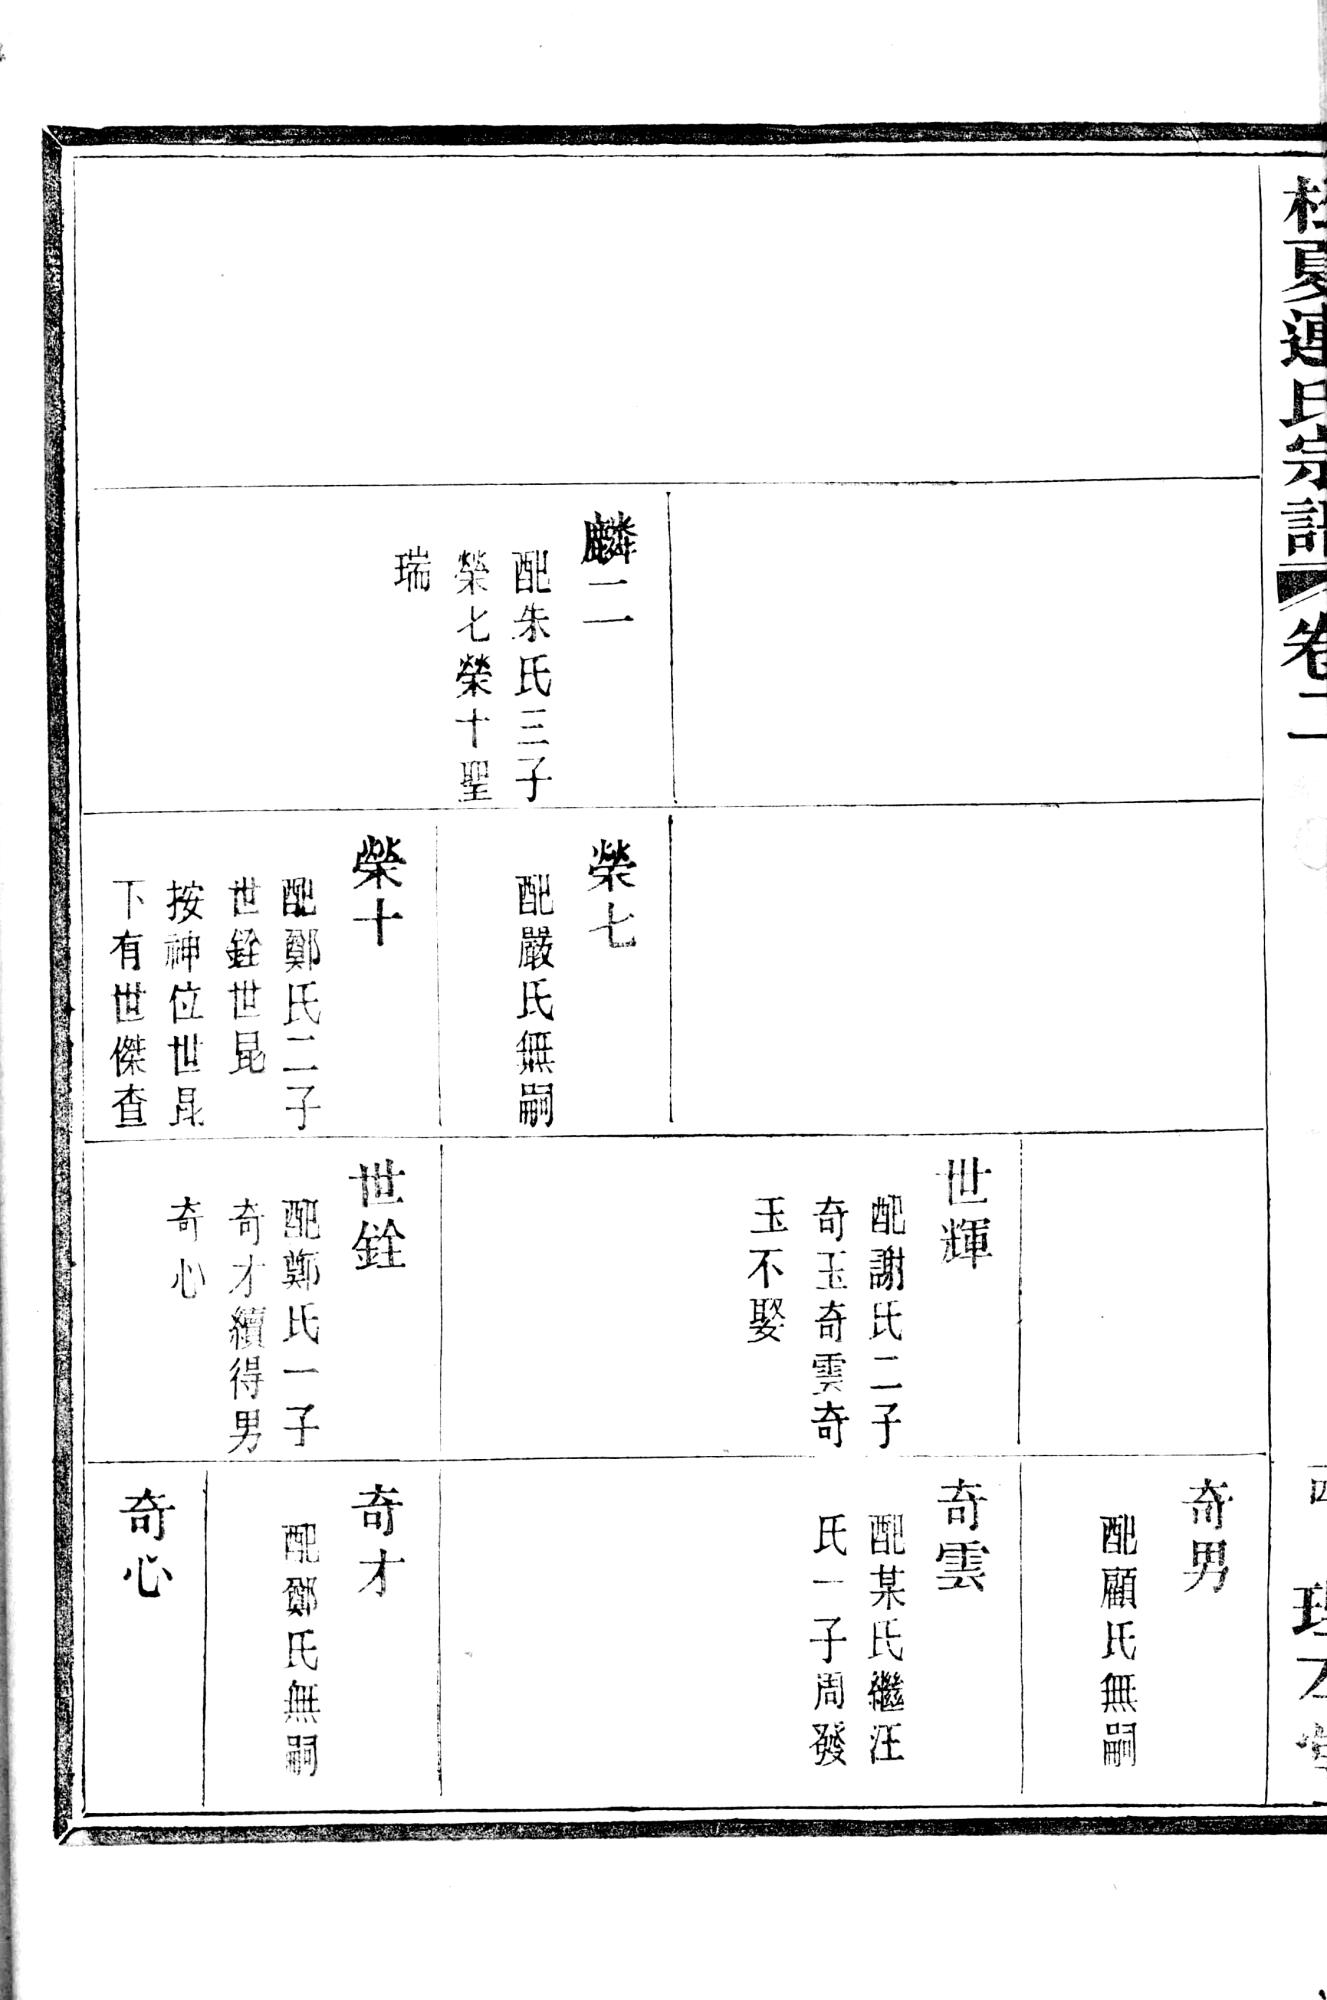 夏連氏宗譜 卷二
麟二
配朱氏三子
榮七榮十聖
瑞
榮七
配嚴氏無嗣
榮十
配鄭氏二子
世銓世昆
按神位世昆
下有世傑查
世輝
配謝氏二子
奇玉奇雲奇
玉不娶
世銓
配鄭氏一子
奇才續得男
奇心
奇男
配顧氏無嗣
奇雲
配某氏繼汪
氏一子周發
奇才
配鄭氏無嗣
奇心